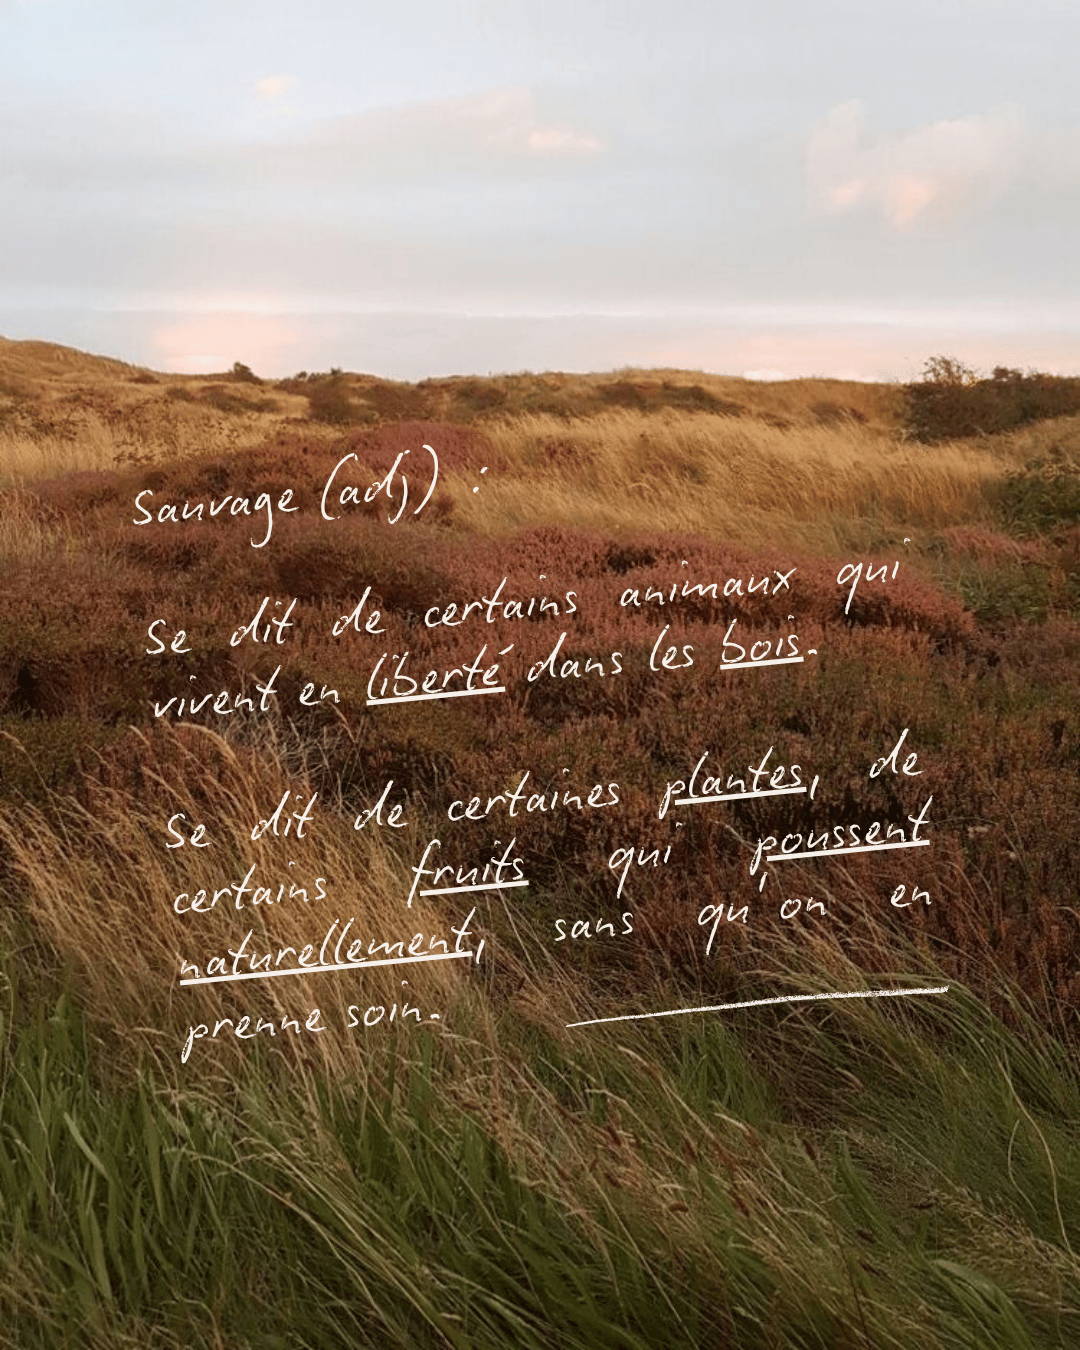 Sauvage (adj) :
Se dit de certains animaux qui
vivent en liberté dans les bois.
Se dit de certaines plantes, de
certains fruits qui poussent
naturellement, sans qu'on en
prenne soin.